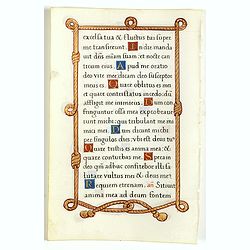 excelsa tua & fluctus tui super
me transierunt. In die manda
uit dñs miam suam: et nocte can
ticum eius. Apud me oratio
deo vite mee: dicam deo susceptor
meus es. Quare oblitus es mei
quare contristatus incedo: dū
affligit me inimicus. Dum con
fringuntur ossa mea: expro
brauerunt michi: qui tribulant me ini
mici mei. Dum dicunt michi
per singulos dies: vbi est deus
tuus Quare tristis es anima mea: &
quare conturbas me. Spera
in deo qm̄ adhuc confitebor illi:
salutare vultus mei & deus meus
Requiem eternam. añ Sitiuit
anima mea ad deum fontem